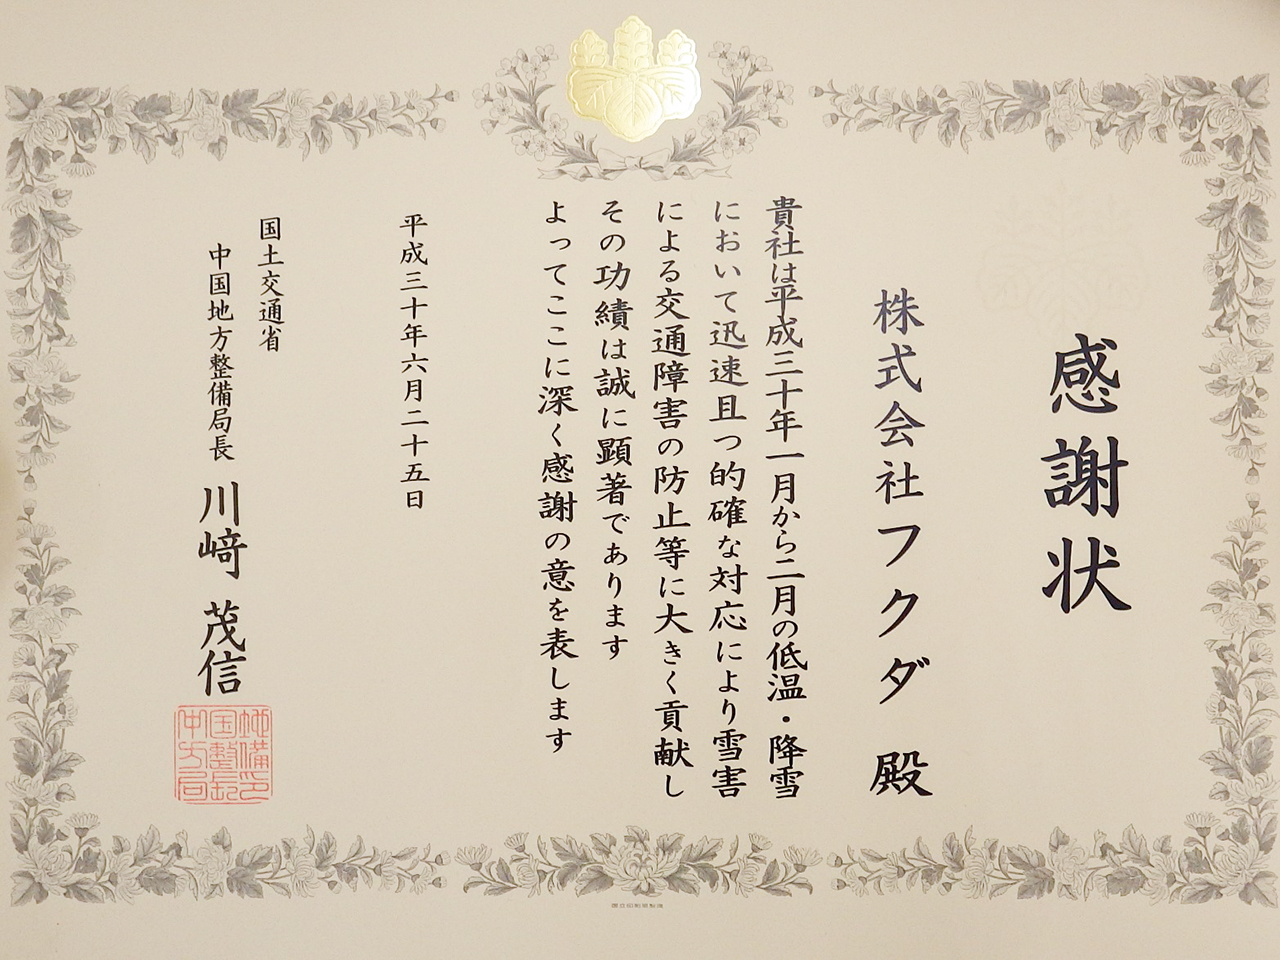 感謝状
株式会社フクダ 殿
貴社は平成三十年一月から二月の低温・降雪
において迅速且つ的確な対応により雪害
による交通障害の防止等に大きく貢献し
その功績は誠に顕著であります
よってここに深く感謝の意を表します
平成三十年六月二十五日
国土交通省
中国地方整備局長 川﨑 茂信